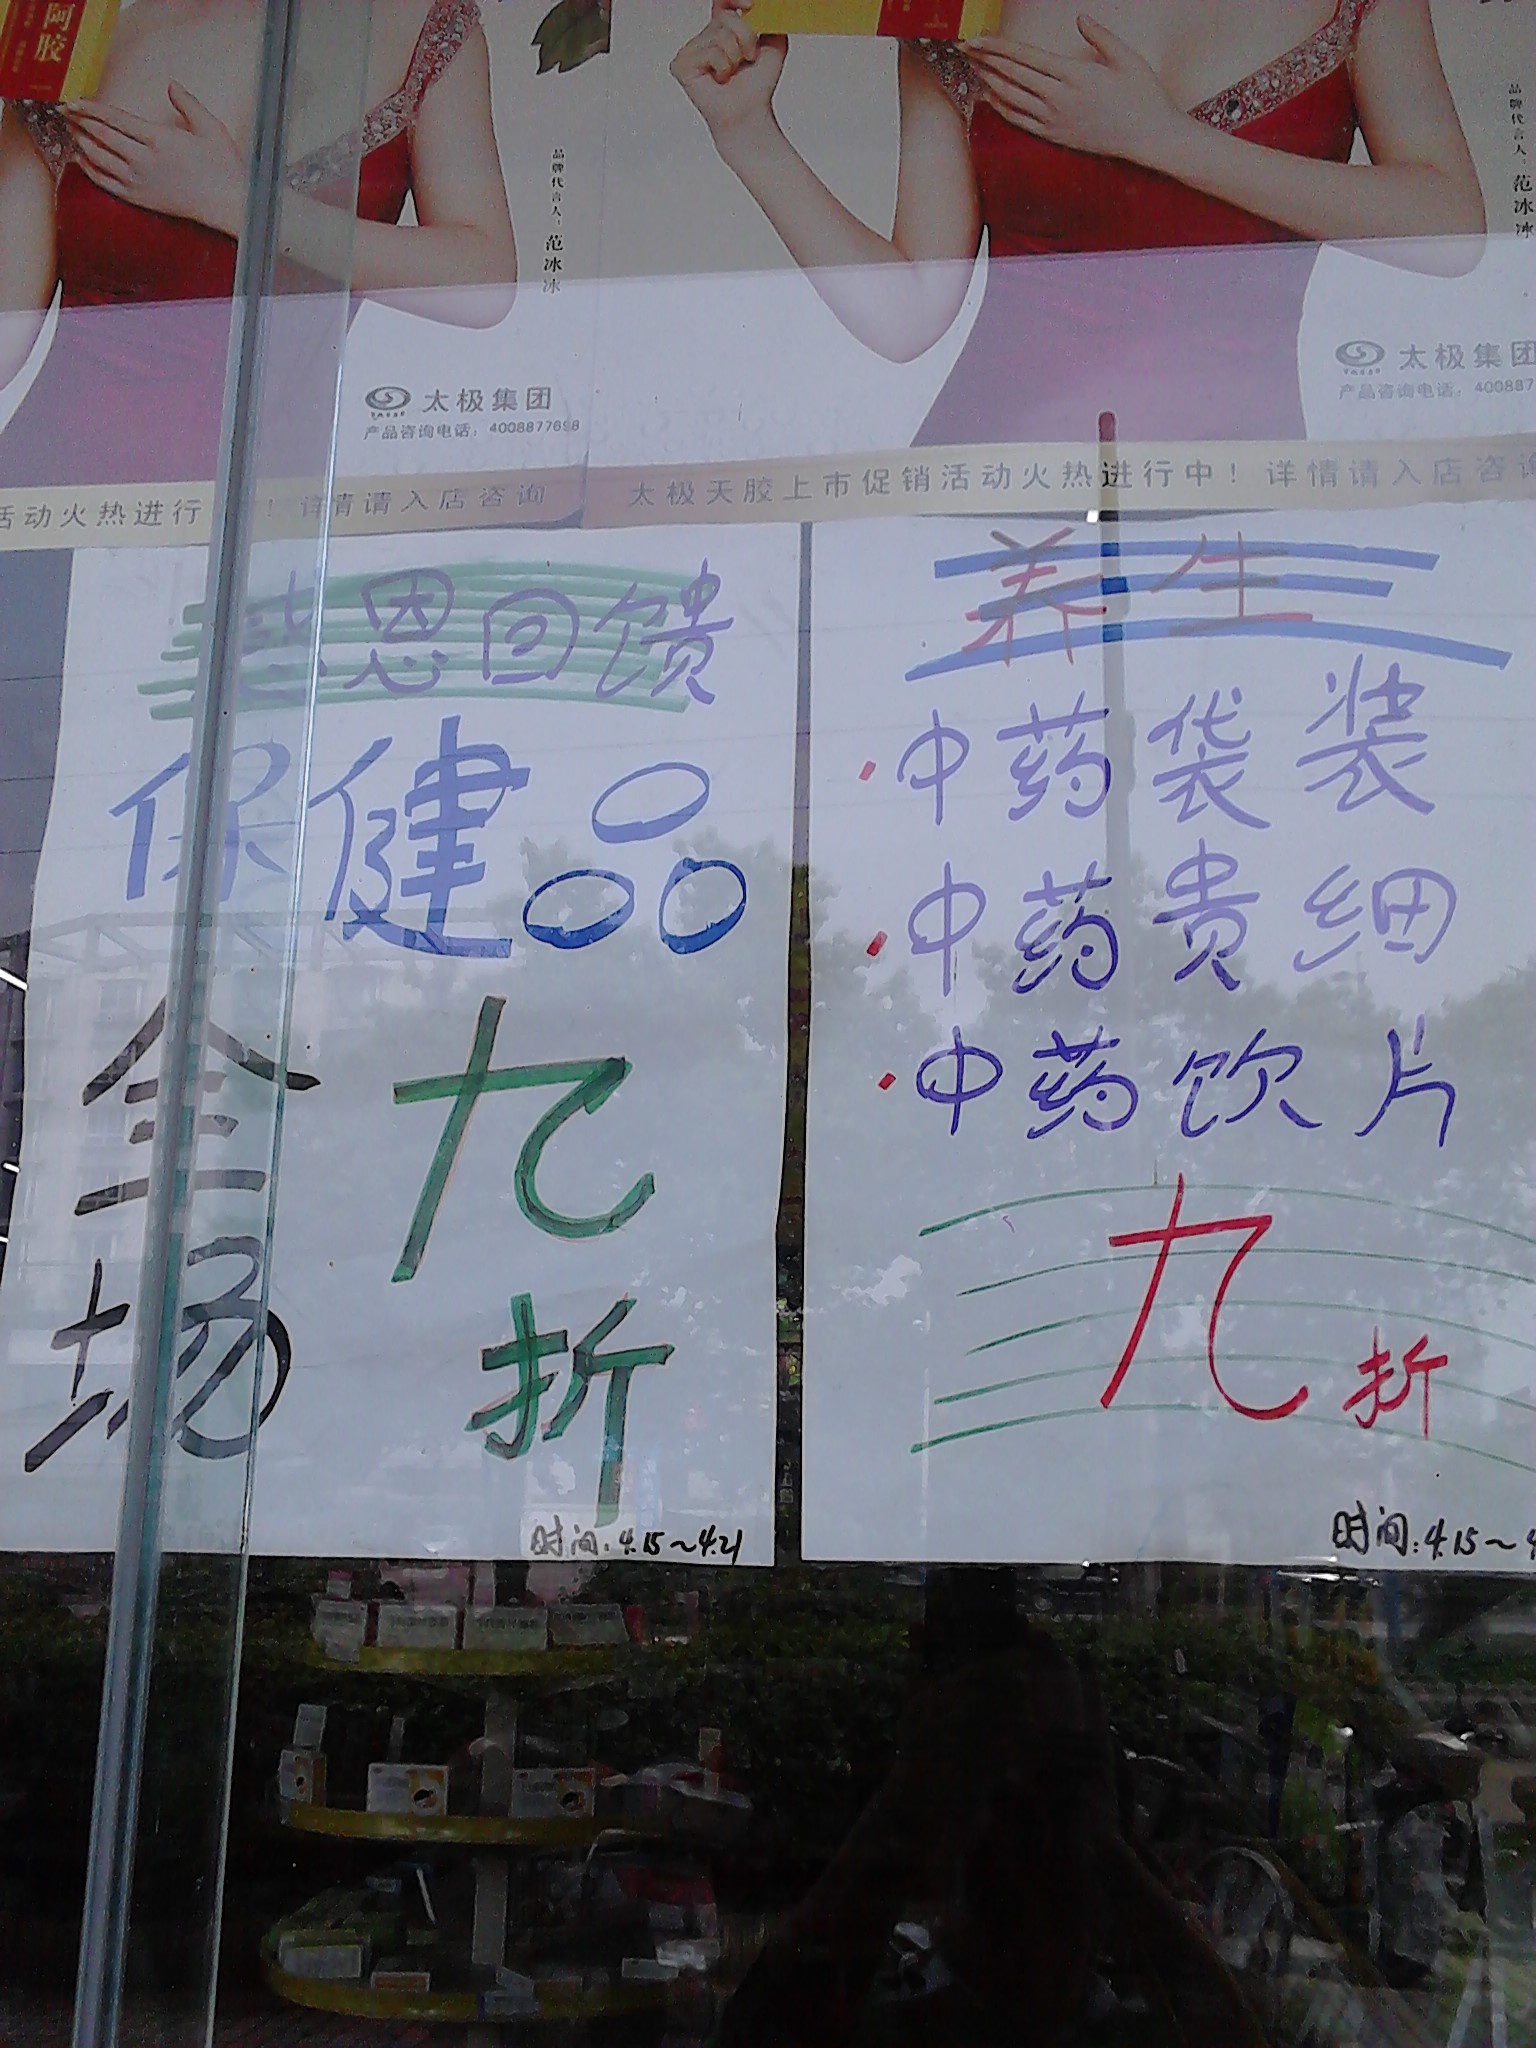 阿胶
品牌代言人：范冰冰
品牌代言人：范冰冰
太极集团
产品咨询电话：4008877698
太极集团
产品咨询电话：400887
活动火热进行
！详情请入店咨询
太极天胶上市促销活动火热进行中！详情请入店咨询
感恩回馈
保健品
全场
九折
时间：4.15～4.21
养生
·中药袋装
·中药贵细
·中药饮片
九折
时间：4.15～